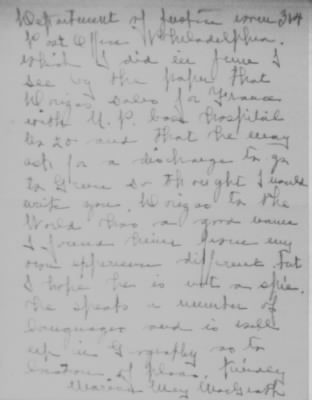 Department of Justice room 314
Post Office Philadelphia.
which I did in June I
see by the paper that
sales for France
with U. P. base hospital
No 20 and that he may
ask for a discharge to go
to Greece so thought I would
write you. to the
World has a good name
I found him from my
own experience different but
I hope he is not a spie.
he speaks a number of
languages and is well
up in Grography as to
location of places. friendly
May